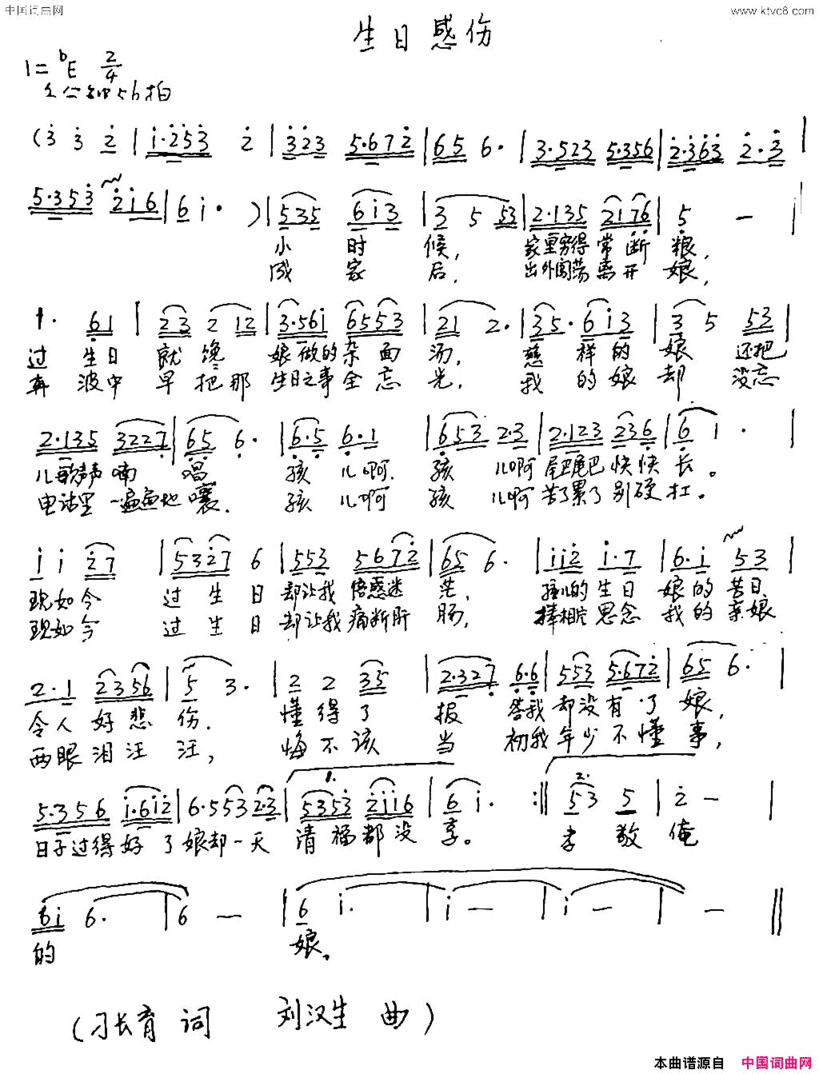 中国词曲网
www.ktvc8.com
生日感伤
1=♭E 2/4
每分钟56拍
(3 3 2 | 1·253 2 | 323 5·672 | 65 6· | 3·523 5·356 | 2·363 2·3 |
5·353 216 | 61· ) | 535 613 | 3 5 53 | 2·135 2176 | 5 — |
小 时 候, 家里穷得常断 粮,
成 家 后, 出外闯荡离开 娘,
1· 61 | 23 2 12 | 3·561 6553 | 21 2· | 35·613 | 3 5 53 |
过 生日 就 馋 娘做的杂面 汤, 慈 祥的 娘 还把
奔 波中 早 把那 生日之事全忘 光, 我 的娘 却 没忘
2·135 3227 | 65 6· | 6·5 6·1 | 653 2·3 | 2·123 236 | 6 1· |
儿歌声声喃 唱 孩 儿啊, 孩 儿啊 尾巴尾巴快快 长。
电话里一遍遍地 嚷, 孩 儿啊 孩 儿啊 苦了累了别硬 扛。
1 1 27 | 5327 6 | 553 5672 | 65 6· | 112 1·7 | 6·1 53 |
现如今 过 生 日 却让我倍感迷 茫, 孩儿的生日 娘的苦日
现如今 过 生 日 却让我痛断肝 肠, 捧相片思念 我的亲娘
2·1 2356 | 5 3· | 2 2 35 | 2·327 6·6 | 553 5·672 | 65 6· |
令人好悲 伤, 懂得了 报 答我 却没有了 娘,
两眼泪汪 汪, 悔不该 当 初我 年少不懂 事,
5·356 1·612 | 6·553 2·3 | 1. 5353 2116 | 6 1· :‖ 2. 53 5 | 2 — |
日子过得好 了娘却一天 清福都没 享。 孝 敬 俺
61 6· | 6 — | 6 1· | 1 — | 1 — | — ‖
的 娘。
(刁长育 词 刘汉生 曲)
本曲谱源自 中国词曲网